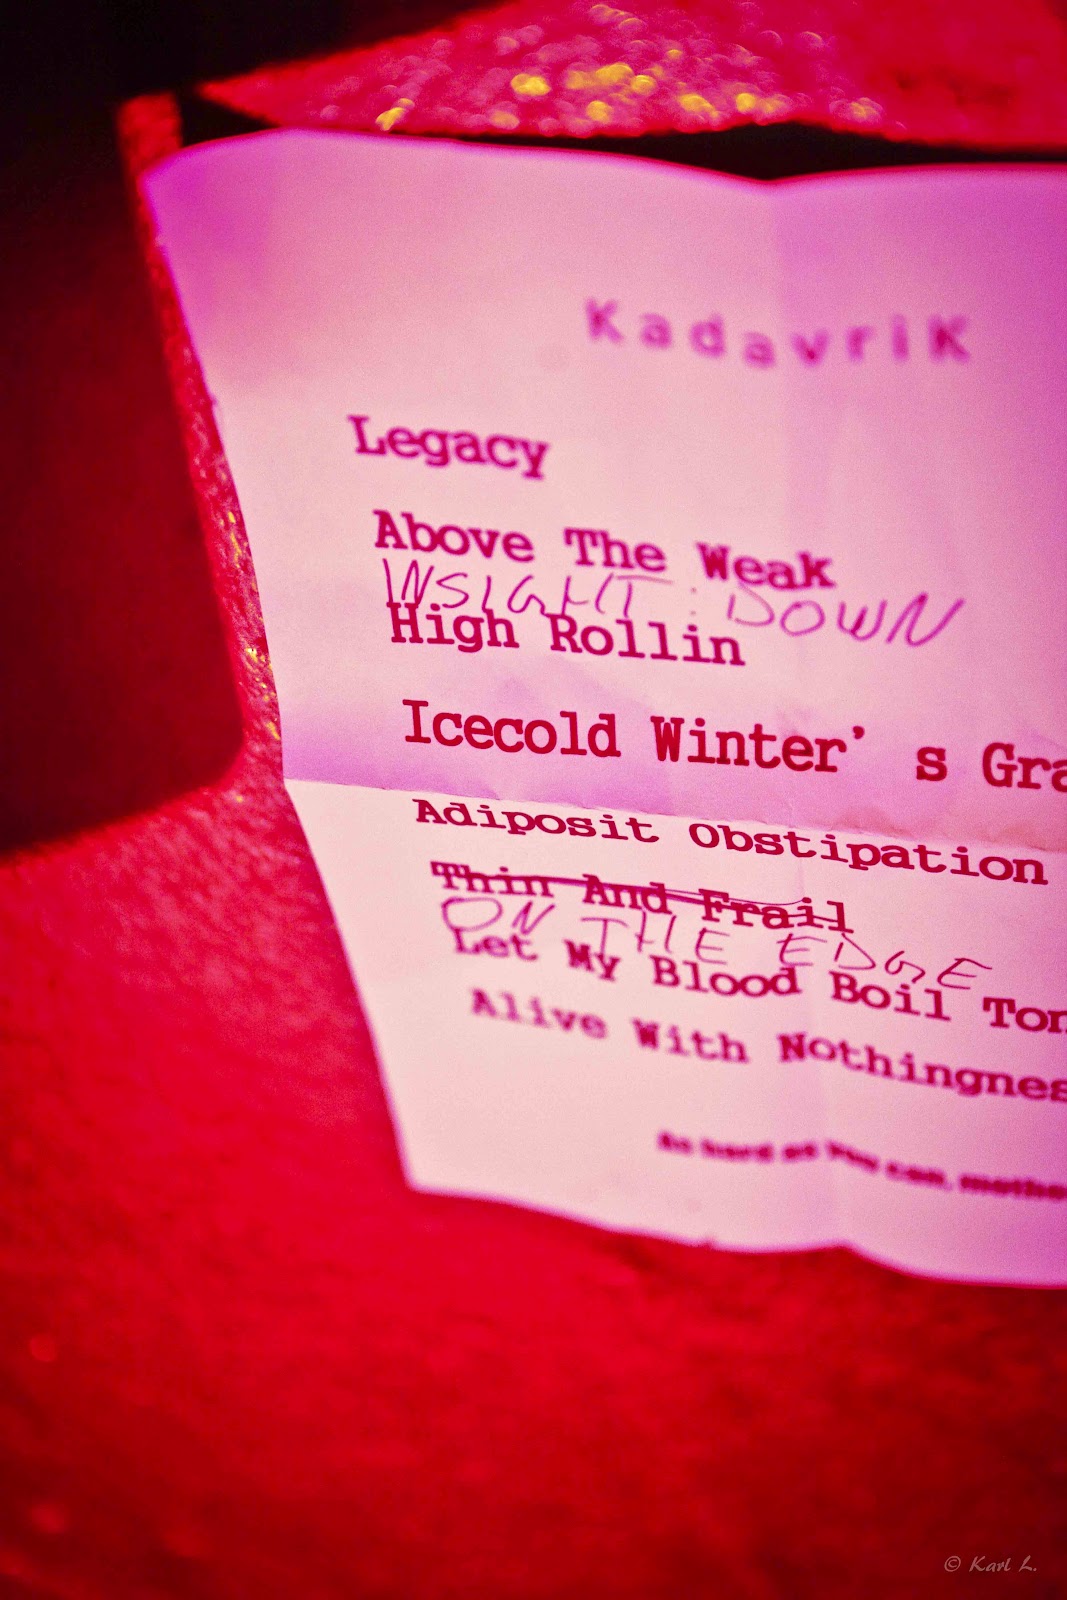 KadavriK
Legacy
Above The Weak
INSIGHT : DOWN
High Rollin
Icecold Winter' s Gra
Adiposit Obstipation
Thin And Frail
ON THE EDGE
Let My Blood Boil Ton
Alive With Nothingnes
As hard as you can, mothe
© Karl L.